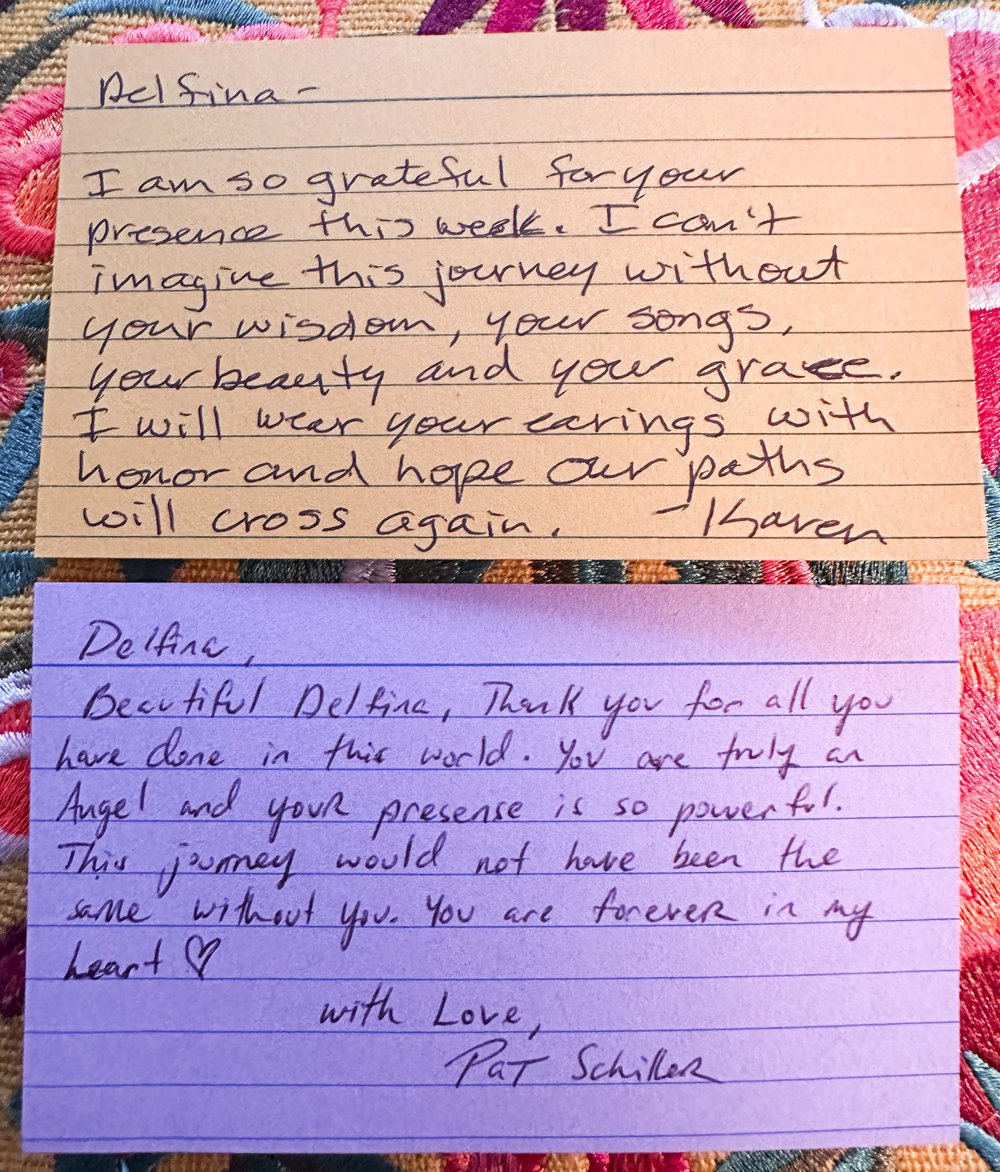 Delfina -
I am so grateful for your
presence this week. I can't
imagine this journey without
your wisdom, your songs,
your beauty and your grace.
I will wear your earings with
honor and hope our paths
will cross again. -Karen
Delfina,
Beautiful Delfina, Thank you for all you
have done in this world. You are truly an
Angel and your presense is so powerful.
This journey would not have been the
same without you. You are forever in my
heart ♡
with Love,
Pat Schiller